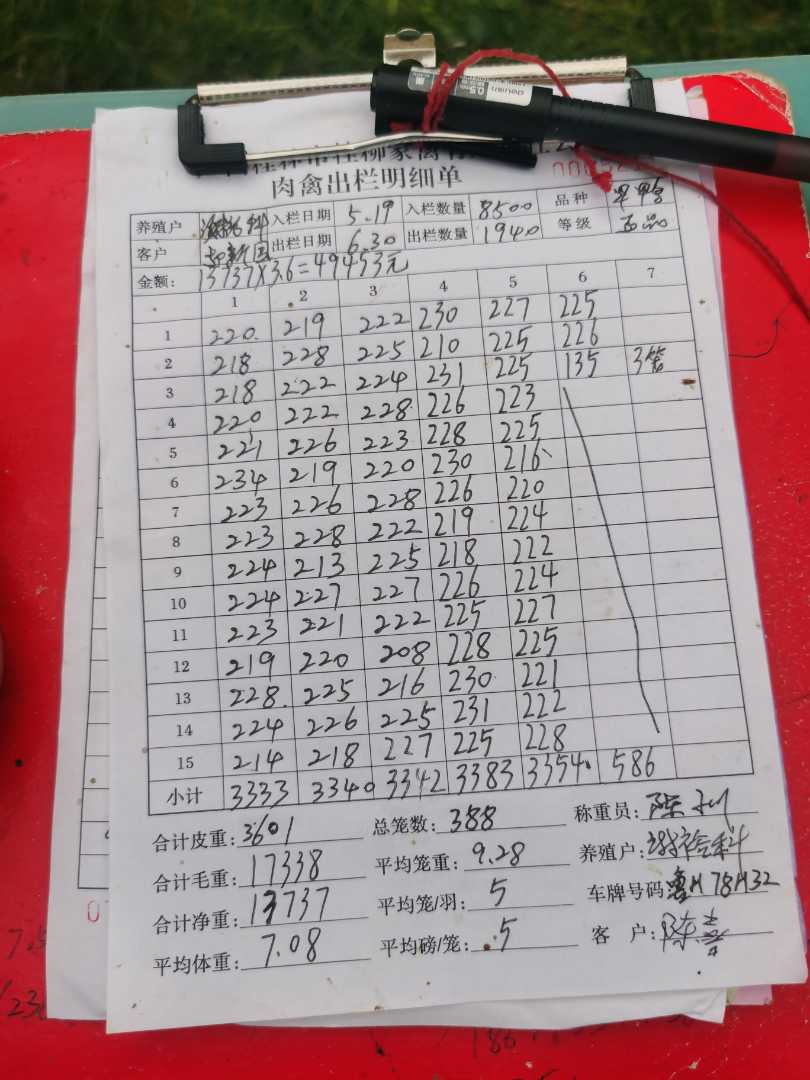 deli 0.5mm
肉禽出栏明细单
养殖户 入栏日期 5.19 入栏数量 8500 品种
客户 出栏日期 6.30 出栏数量 1940 等级
金额: 13737×3.6=49453元
1 2 3 4 5 6 7
1 220 219 222 230 227 225
2 218 228 225 210 225 226
3 218 222 224 231 225 135 3笼
4 220 222 228 226 223
5 221 226 223 228 225
6 234 219 220 230 216
7 223 226 228 226 220
8 223 228 222 219 224
9 224 213 225 218 222
10 224 227 227 226 224
11 223 221 222 225 227
12 219 220 208 228 225
13 228 225 216 230 221
14 224 226 225 231 222
15 214 218 227 225 228
小计 3333 3340 3342 3383 3354 586
合计皮重: 3601 总笼数: 388 称重员:
合计毛重: 17338 平均笼重: 9.28 养殖户:
合计净重: 13737 平均笼/羽: 5 车牌号码 78H32
平均体重: 7.08 平均磅/笼: .5 客 户: